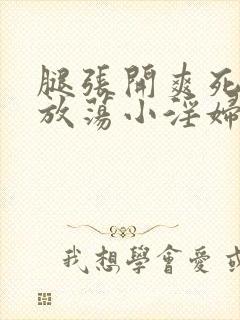 腿张開爽死
放蕩小淫婦
我想學會愛